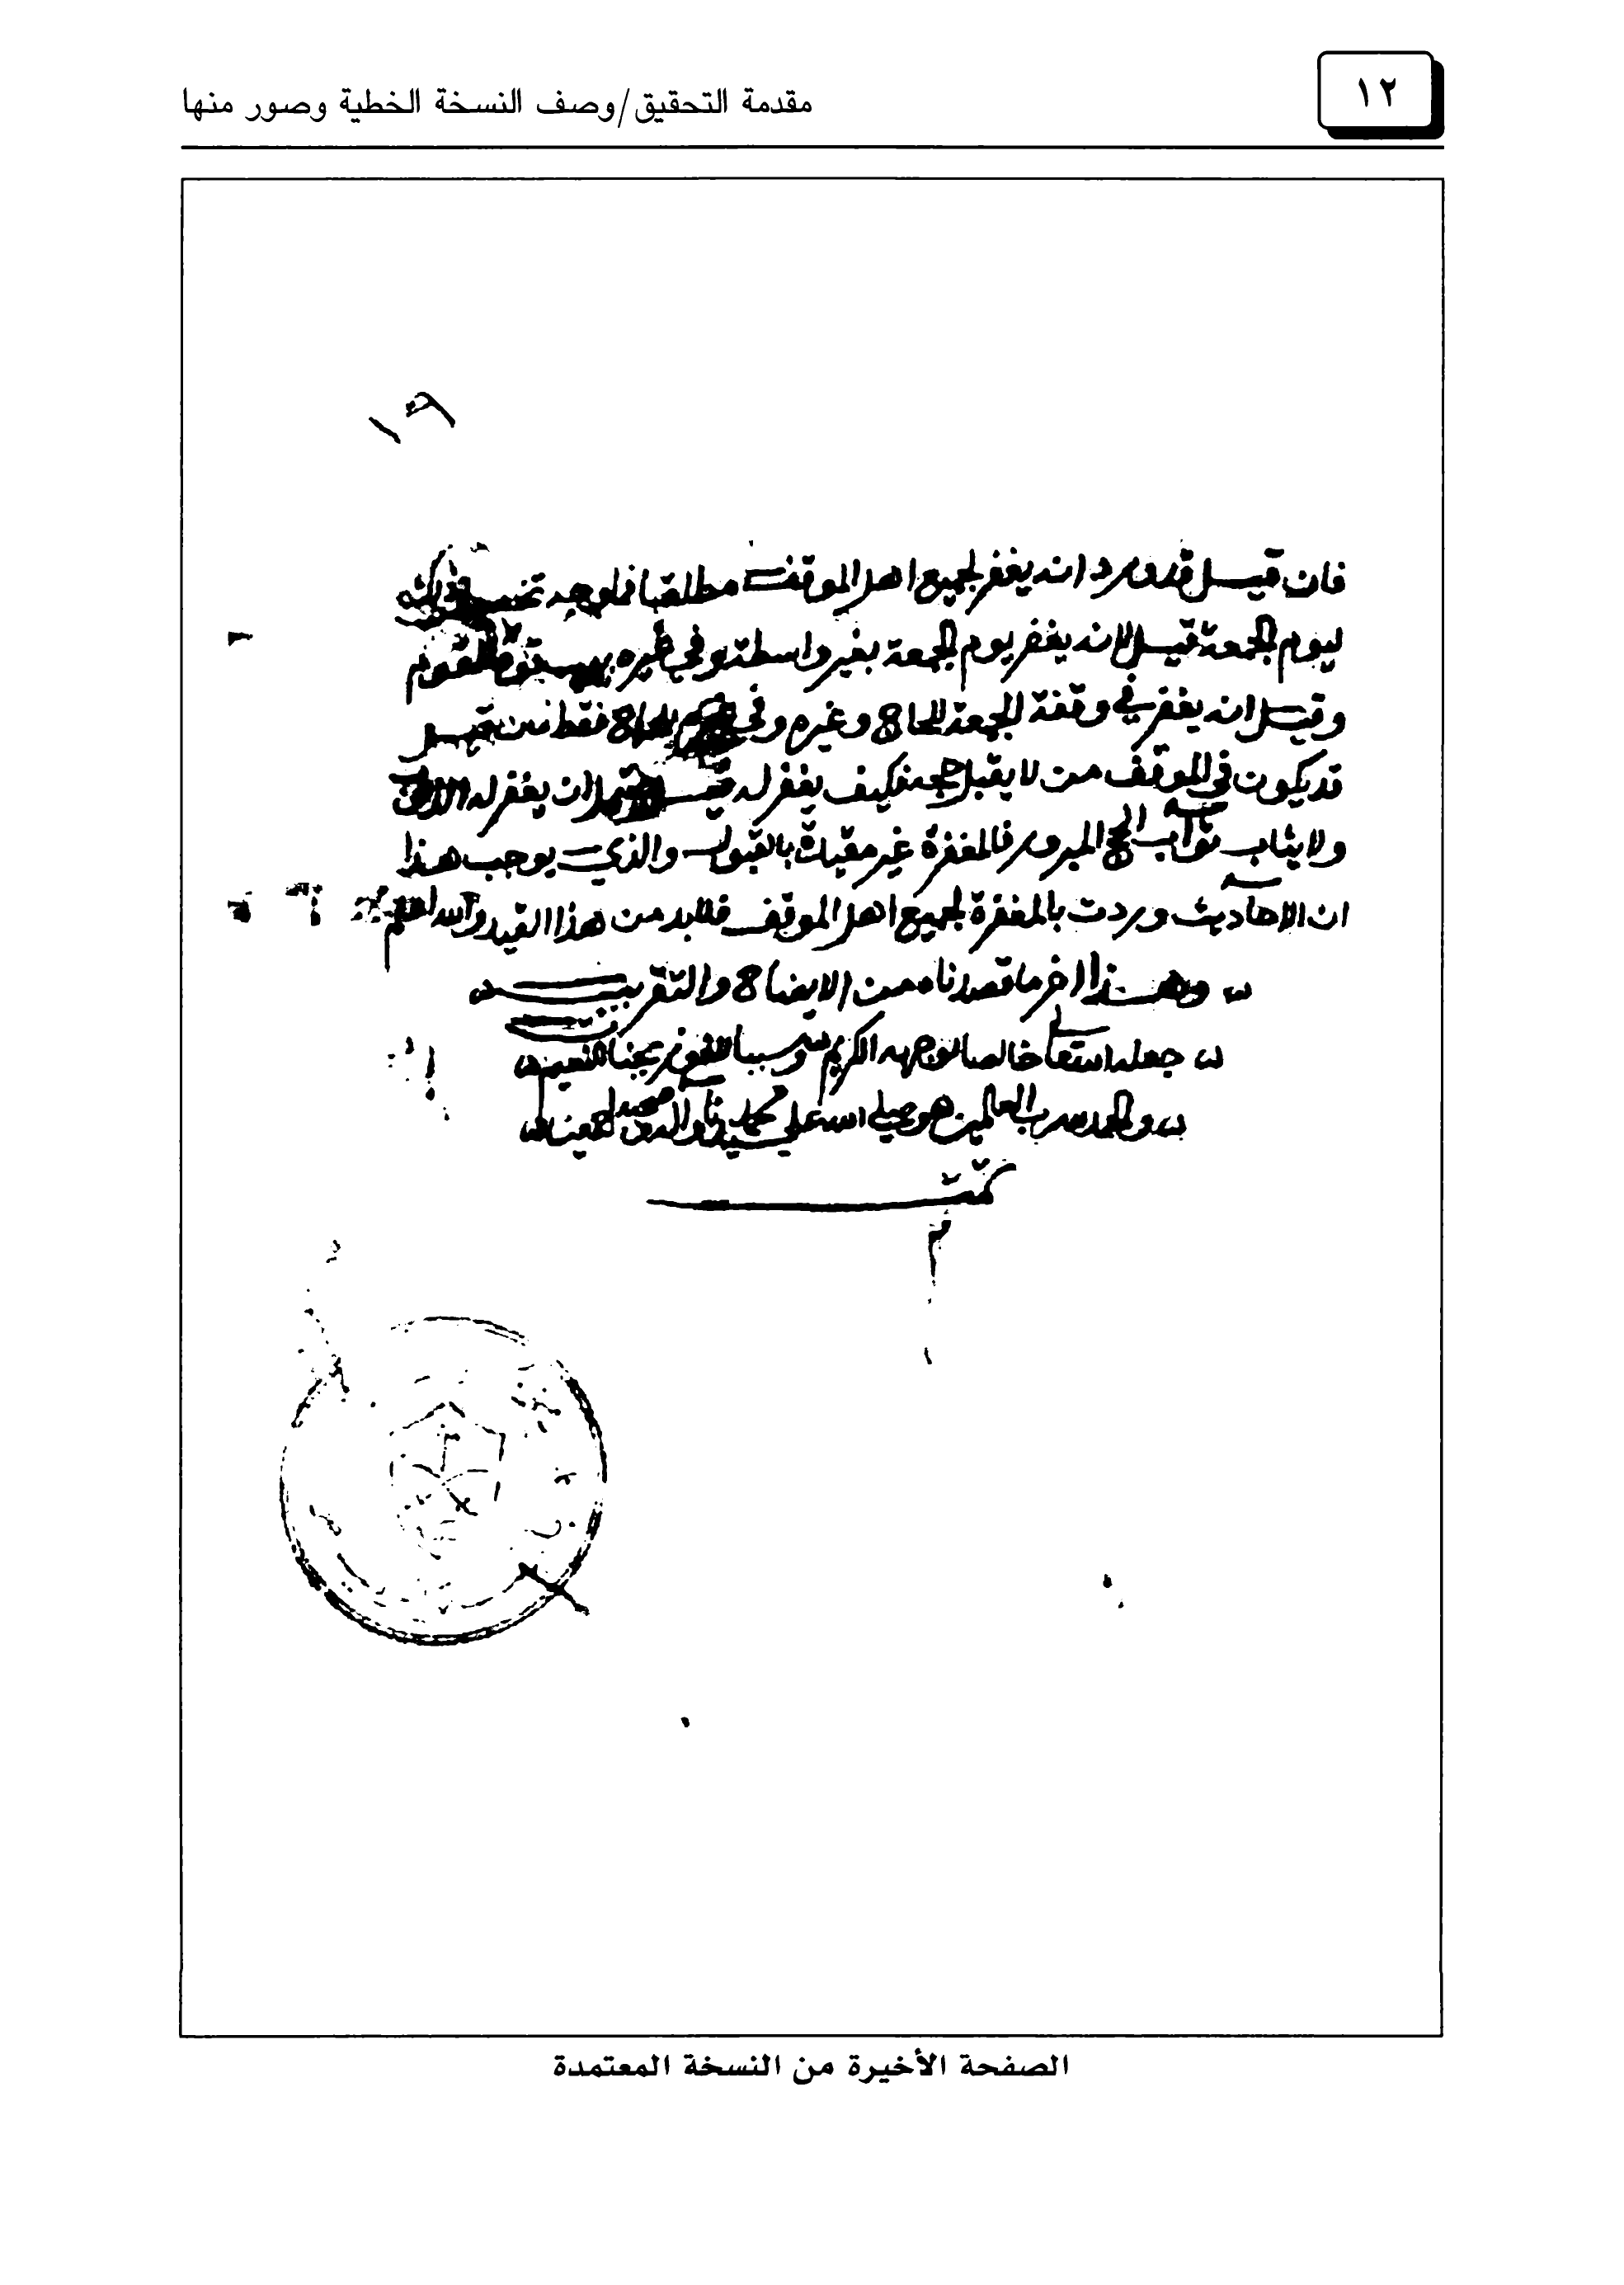 ١٢
مقدمة التحقيق/وصف النسخة الخطية وصور منها
١٩
فان قيل قد ورد انه يغفر لجميع اهل الموقف مطلقا فما وجه
ليوم الجمعة قيل لانه يغفر يوم الجمعة بغير واسطة وفي غيره
وقيل انه يغفر في وقفة الجمعة للحاج وغيره وفي للحاج فقط فان قيل
قد يكون في الموقف من لا يقبل حجه فكيف يغفر له قيل يحتمل ان يغفر له
ولا يثاب ثواب الحج المبرور فالمغفرة غير مقيدة بالقبول والذي يوجب هذا
ان الاحاديث وردت بالمغفرة لجميع اهل الموقف فلابد من هذا القيد والله اعلم
وهذا اخر ما قصدناه من الايضاح والتقريب
جعله الله تعالى خالصا لوجهه الكريم وسببا للفوز بجنات النعيم
والحمد لله رب العالمين وصلى الله على سيدنا محمد واله وصحبه اجمعين
تمت
م
الصفحة الأخيرة من النسخة المعتمدة